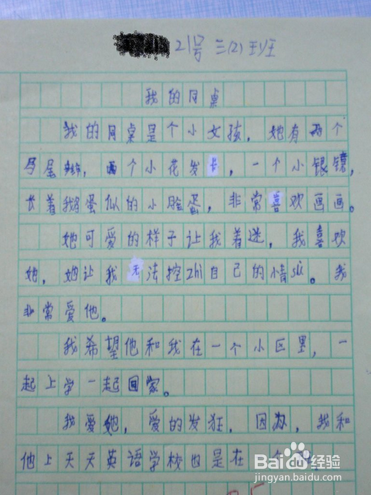 21号 三(2)班
我的同桌
我的同桌是个小女孩，她有两个
马尾辫，两个小花发卡，一个小银镜，
长着鹅蛋似的小脸蛋，非常喜欢画画。
她可爱的样子让我着迷，我喜欢
她，她让我无法控zhi自己的情sù。我
非常爱他。
我希望他和我在一个小区里，一
起上学一起回家。
我爱她，爱的发狂，因为，我和
他上天天英语学校也是在一个
Baidu经验
jingyan.baidu.com